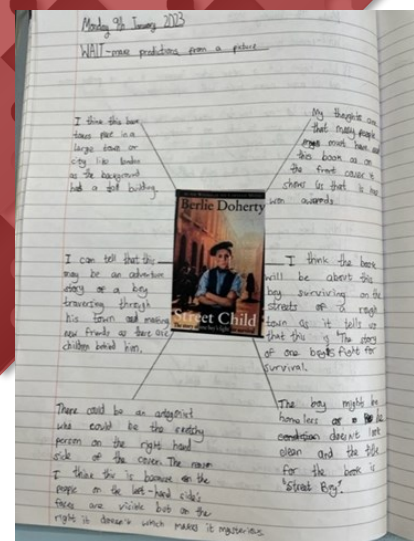 Monday 9th January 2023
WALT - make predictions from a picture
I think this book
takes place in a
large town or
city like london
as the background
had a tall building.
My thoughts are
that many people
must have
this book as on
the front cover it
shows us that is has
won awards.
Berlie Doherty
Street Child
The story of one boy's fight for survival
I can tell that this
may be an adventure
story of a boy
traversing through
his town and meeting
new friends as there are
children behind him.
I think the book
will be about this
boy surviving on the
streets of a rough
town as it tells us
that this is "The story
of one boys fight for
survival.
There could be an antagonist
who could be the sketchy
person on the right hand
side of the cover. The reason
I think this is because on the
people on the left-hand side's
faces are visible but on the
right it doesn't which makes it mysterious
The boy might be
homeless as
doesn't look
clean and the title
for the book is
"Street Boy".